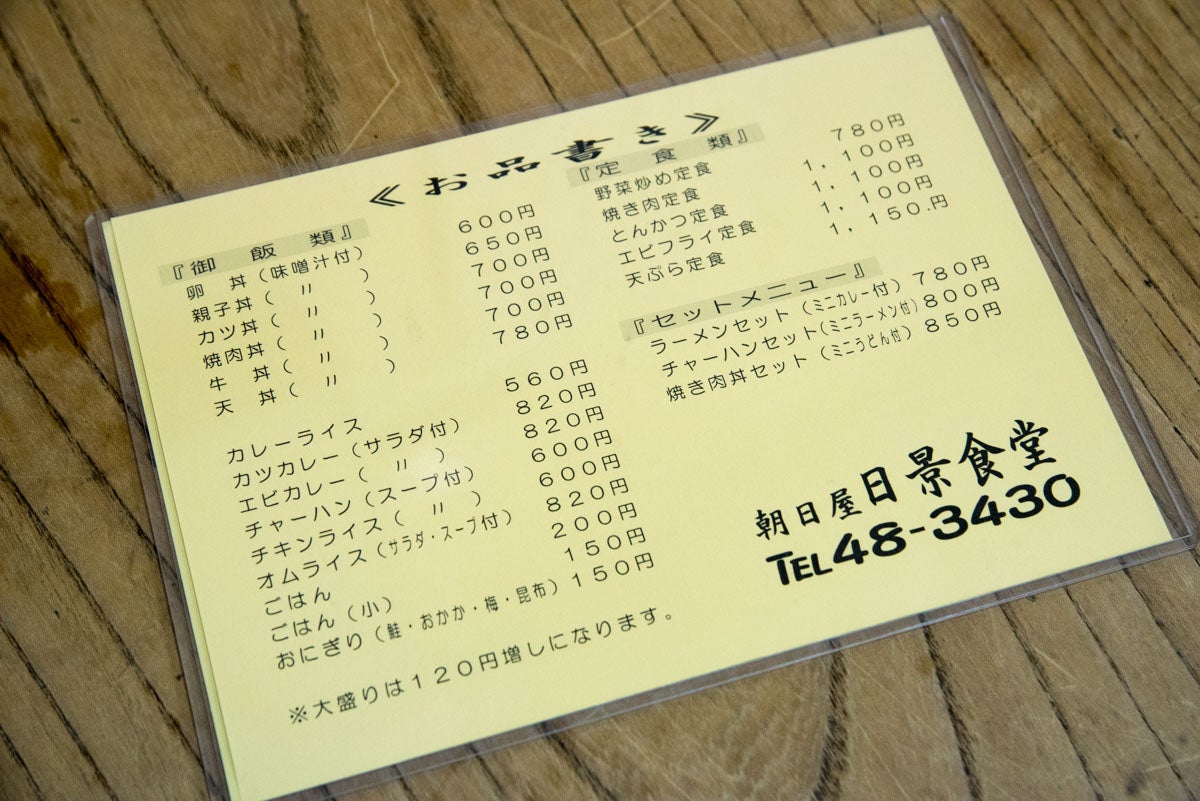 ≪お品書き≫
『御飯類』
卵　丼（味噌汁付） 600円
親子丼（　〃　） 650円
カツ丼（　〃　） 700円
焼肉丼（　〃　） 700円
牛　丼（　〃　） 700円
天　丼（　〃　） 780円
カレーライス 560円
カツカレー（サラダ付） 820円
エビカレー（　〃　） 820円
チャーハン（スープ付） 600円
チキンライス（　〃　） 600円
オムライス（サラダ・スープ付） 820円
ごはん 200円
ごはん（小） 150円
おにぎり（鮭・おかか・梅・昆布） 150円
※大盛りは120円増しになります。
『定食類』
野菜炒め定食 780円
焼き肉定食 1,100円
とんかつ定食 1,100円
エビフライ定食 1,100円
天ぷら定食 1,150円
『セットメニュー』
ラーメンセット（ミニカレー付） 780円
チャーハンセット（ミニラーメン付） 800円
焼き肉丼セット（ミニうどん付） 850円
朝日屋日景食堂
TEL48-3430